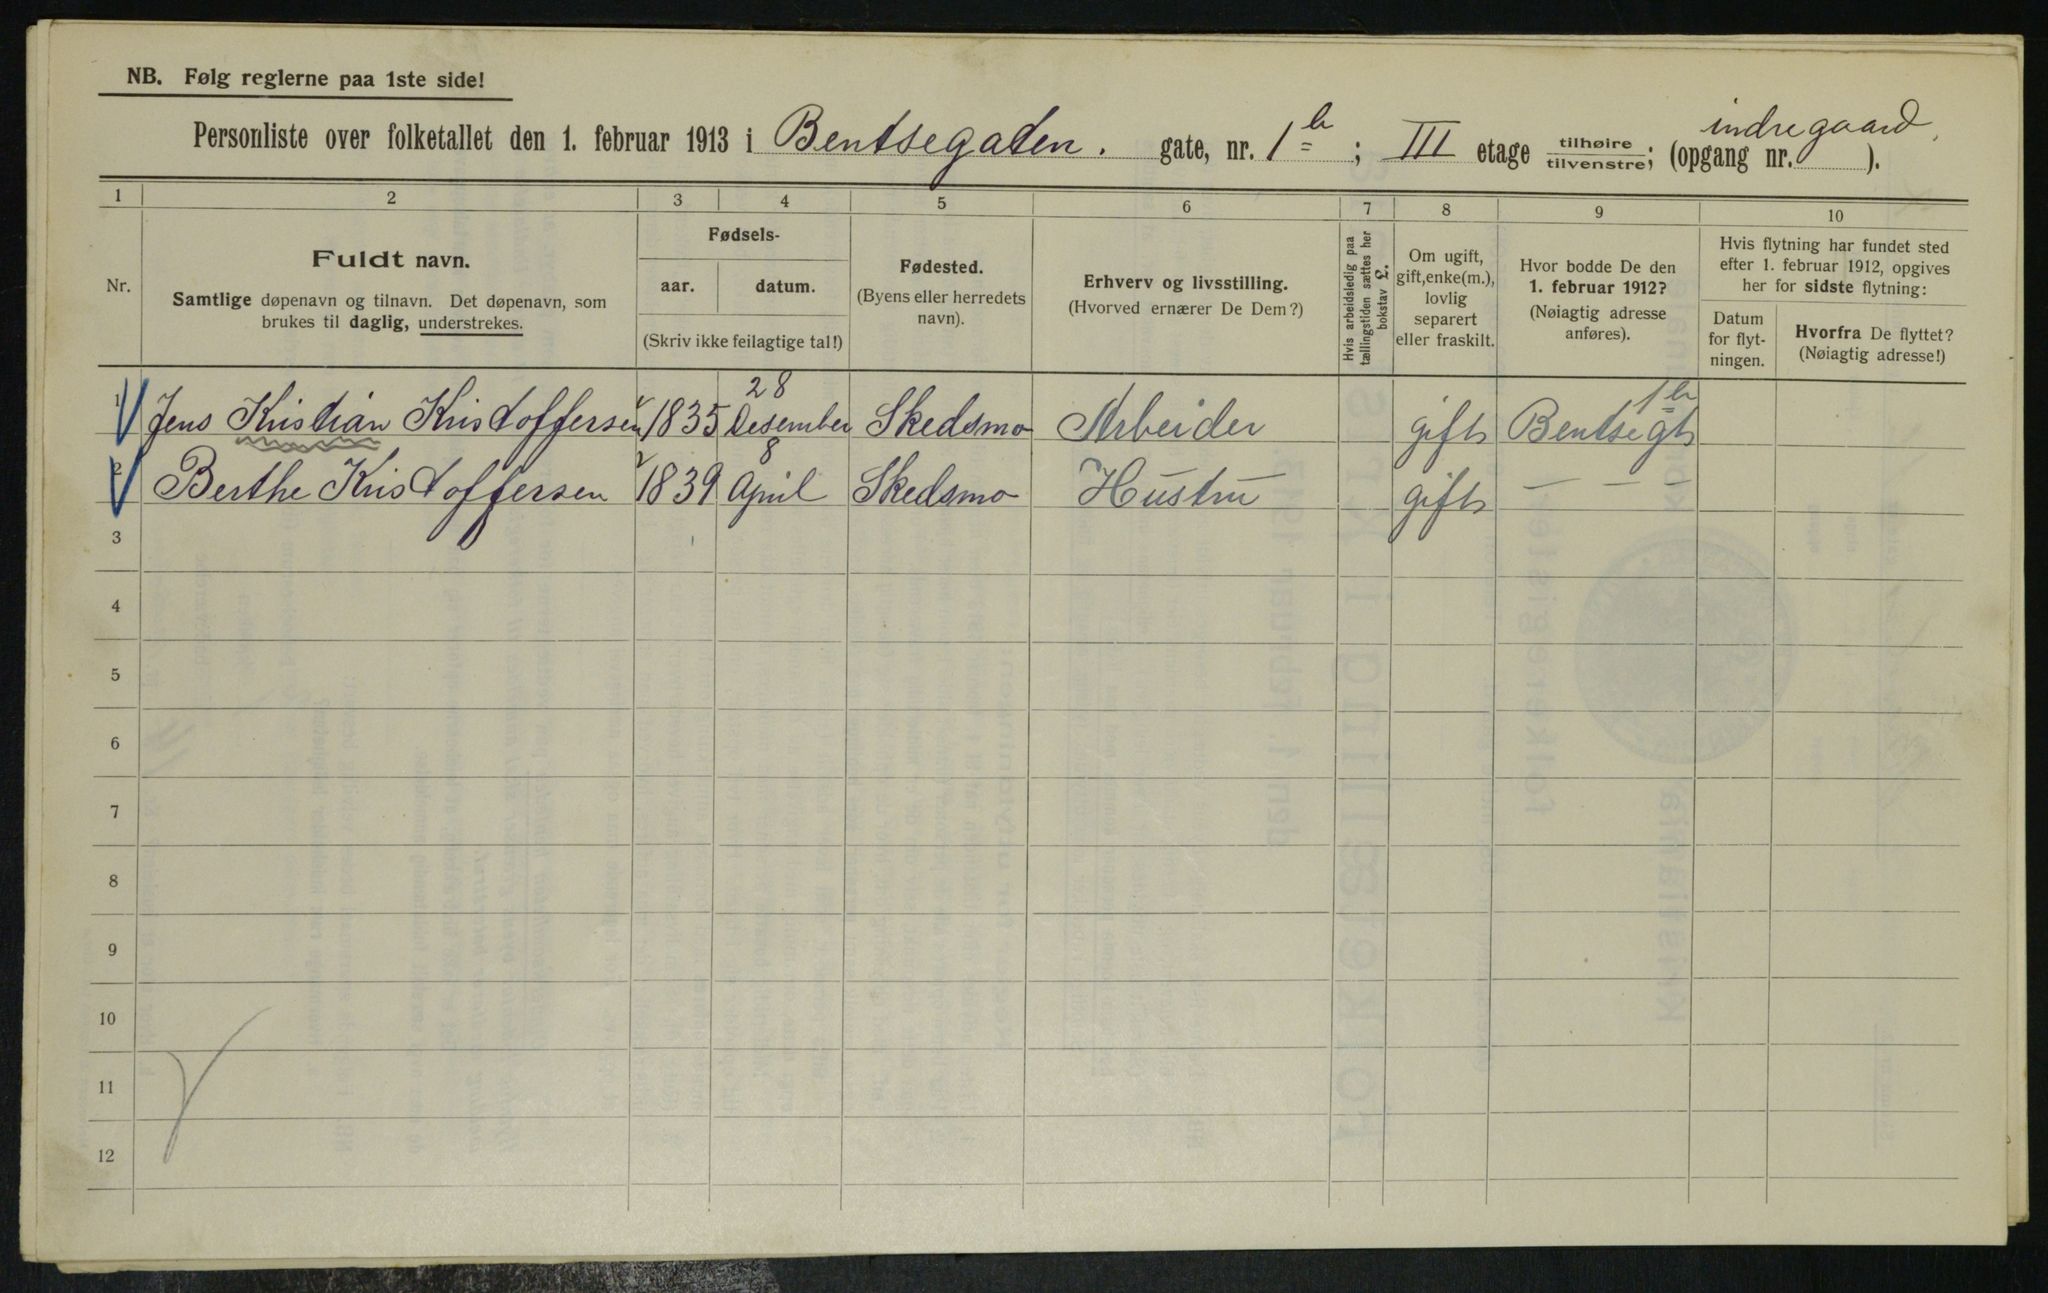 NB. Følg reglerne paa 1ste side!
Personliste over folketallet den 1. februar 1913 i Bentsegaten. gate, nr. 1b; III etage tilhøire/tilvenstre; (opgang nr. indregaard).
1 2 3 4 5 6 7 8 9 10
Nr.
Fuldt navn.
Samtlige døpenavn og tilnavn. Det døpenavn, som
brukes til daglig, understrekes.
Fødsels-
aar. datum.
(Skriv ikke feilagtige tal!)
Fødested.
(Byens eller herredets
navn).
Erhverv og livsstilling.
(Hvorved ernærer De Dem?)
Hvis arbeidsledig paa
tællingstiden sættes her
bokstav £.
Om ugift,
gift, enke(m.),
lovlig
separert
eller fraskilt.
Hvor bodde De den
1. februar 1912?
(Nøiagtig adresse
anføres).
Hvis flytning har fundet sted
efter 1. februar 1912, opgives
her for sidste flytning:
Datum
for flyt-
ningen.
Hvorfra De flyttet?
(Nøiagtig adresse!)
1 Jens Kristian Kristoffersen 1835 28 Desember Skedsmo Arbeider gift Bentsegt 1b
2 Berthe Kristoffersen 1839 8 April Skedsmo Hustru gift — — —
3
4
5
6
7
8
9
10
11
12